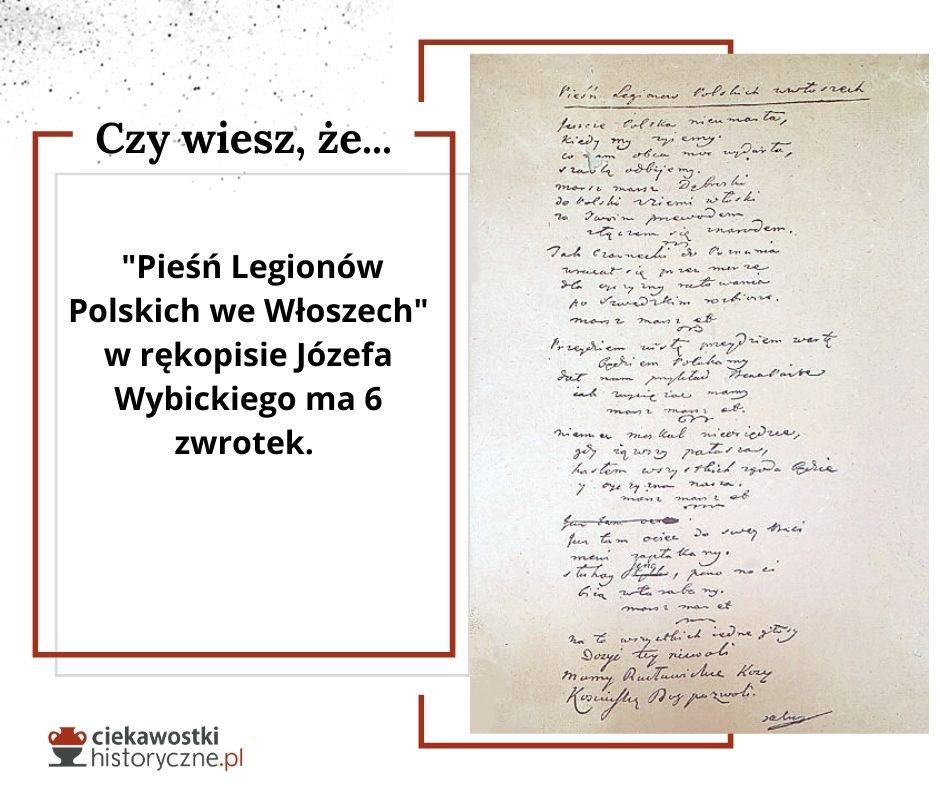 Czy wiesz, że...
"Pieśń Legionów
Polskich we Włoszech"
w rękopisie Józefa
Wybickiego ma 6
zwrotek.
Pieśń Legionow Polskich wewłoszech
Jeszcze Polska nieumarła,
kiedy my żyiemy.
co nam obca moc wydarła,
szablą odbijemy.
marsz marsz Dąbroski
do Polski zziemi włoski
za Twoim przewodem
złączem się znarodem.
Jak Czarnecki do Poznania
wracał się przez morze
dla oyczyzny ratowania
po Szwedzkim rozbiorze.
marsz marsz et
Przeydziem wisłę przeydziem wartę
będziem Polakamy
dał nam przykład Bonaparte
jak zwyciężać mamy
marsz marsz et.
niemiec moskal nieosiędzie,
gdy iąwszy pałasza,
hasłem wszystkich zgoda będzie
y oyczyzna nasza.
marsz marsz et
Już tam ociec do swey Basi
mówi zapłakany.
słuchay jeno, pono nasi
biią wtarabany.
marsz mar et
na to wszystkich iedne głosy
Dosyć tey niewoli
mamy Racławickie Kosy
Kosciuszkę Bog pozwoli.
ciekawostki
historyczne.pl